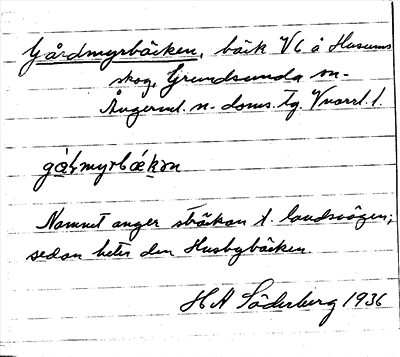 Gårdmyrbäcken, bäck V6 å Husums
skog, Grundsunda sn.
Ångerml. n. doms. tg. Vnorrl. l.
Namnet anger sträckan t. landsvägen;
sedan heter den Husbybäcken.
H A Söderberg 1936